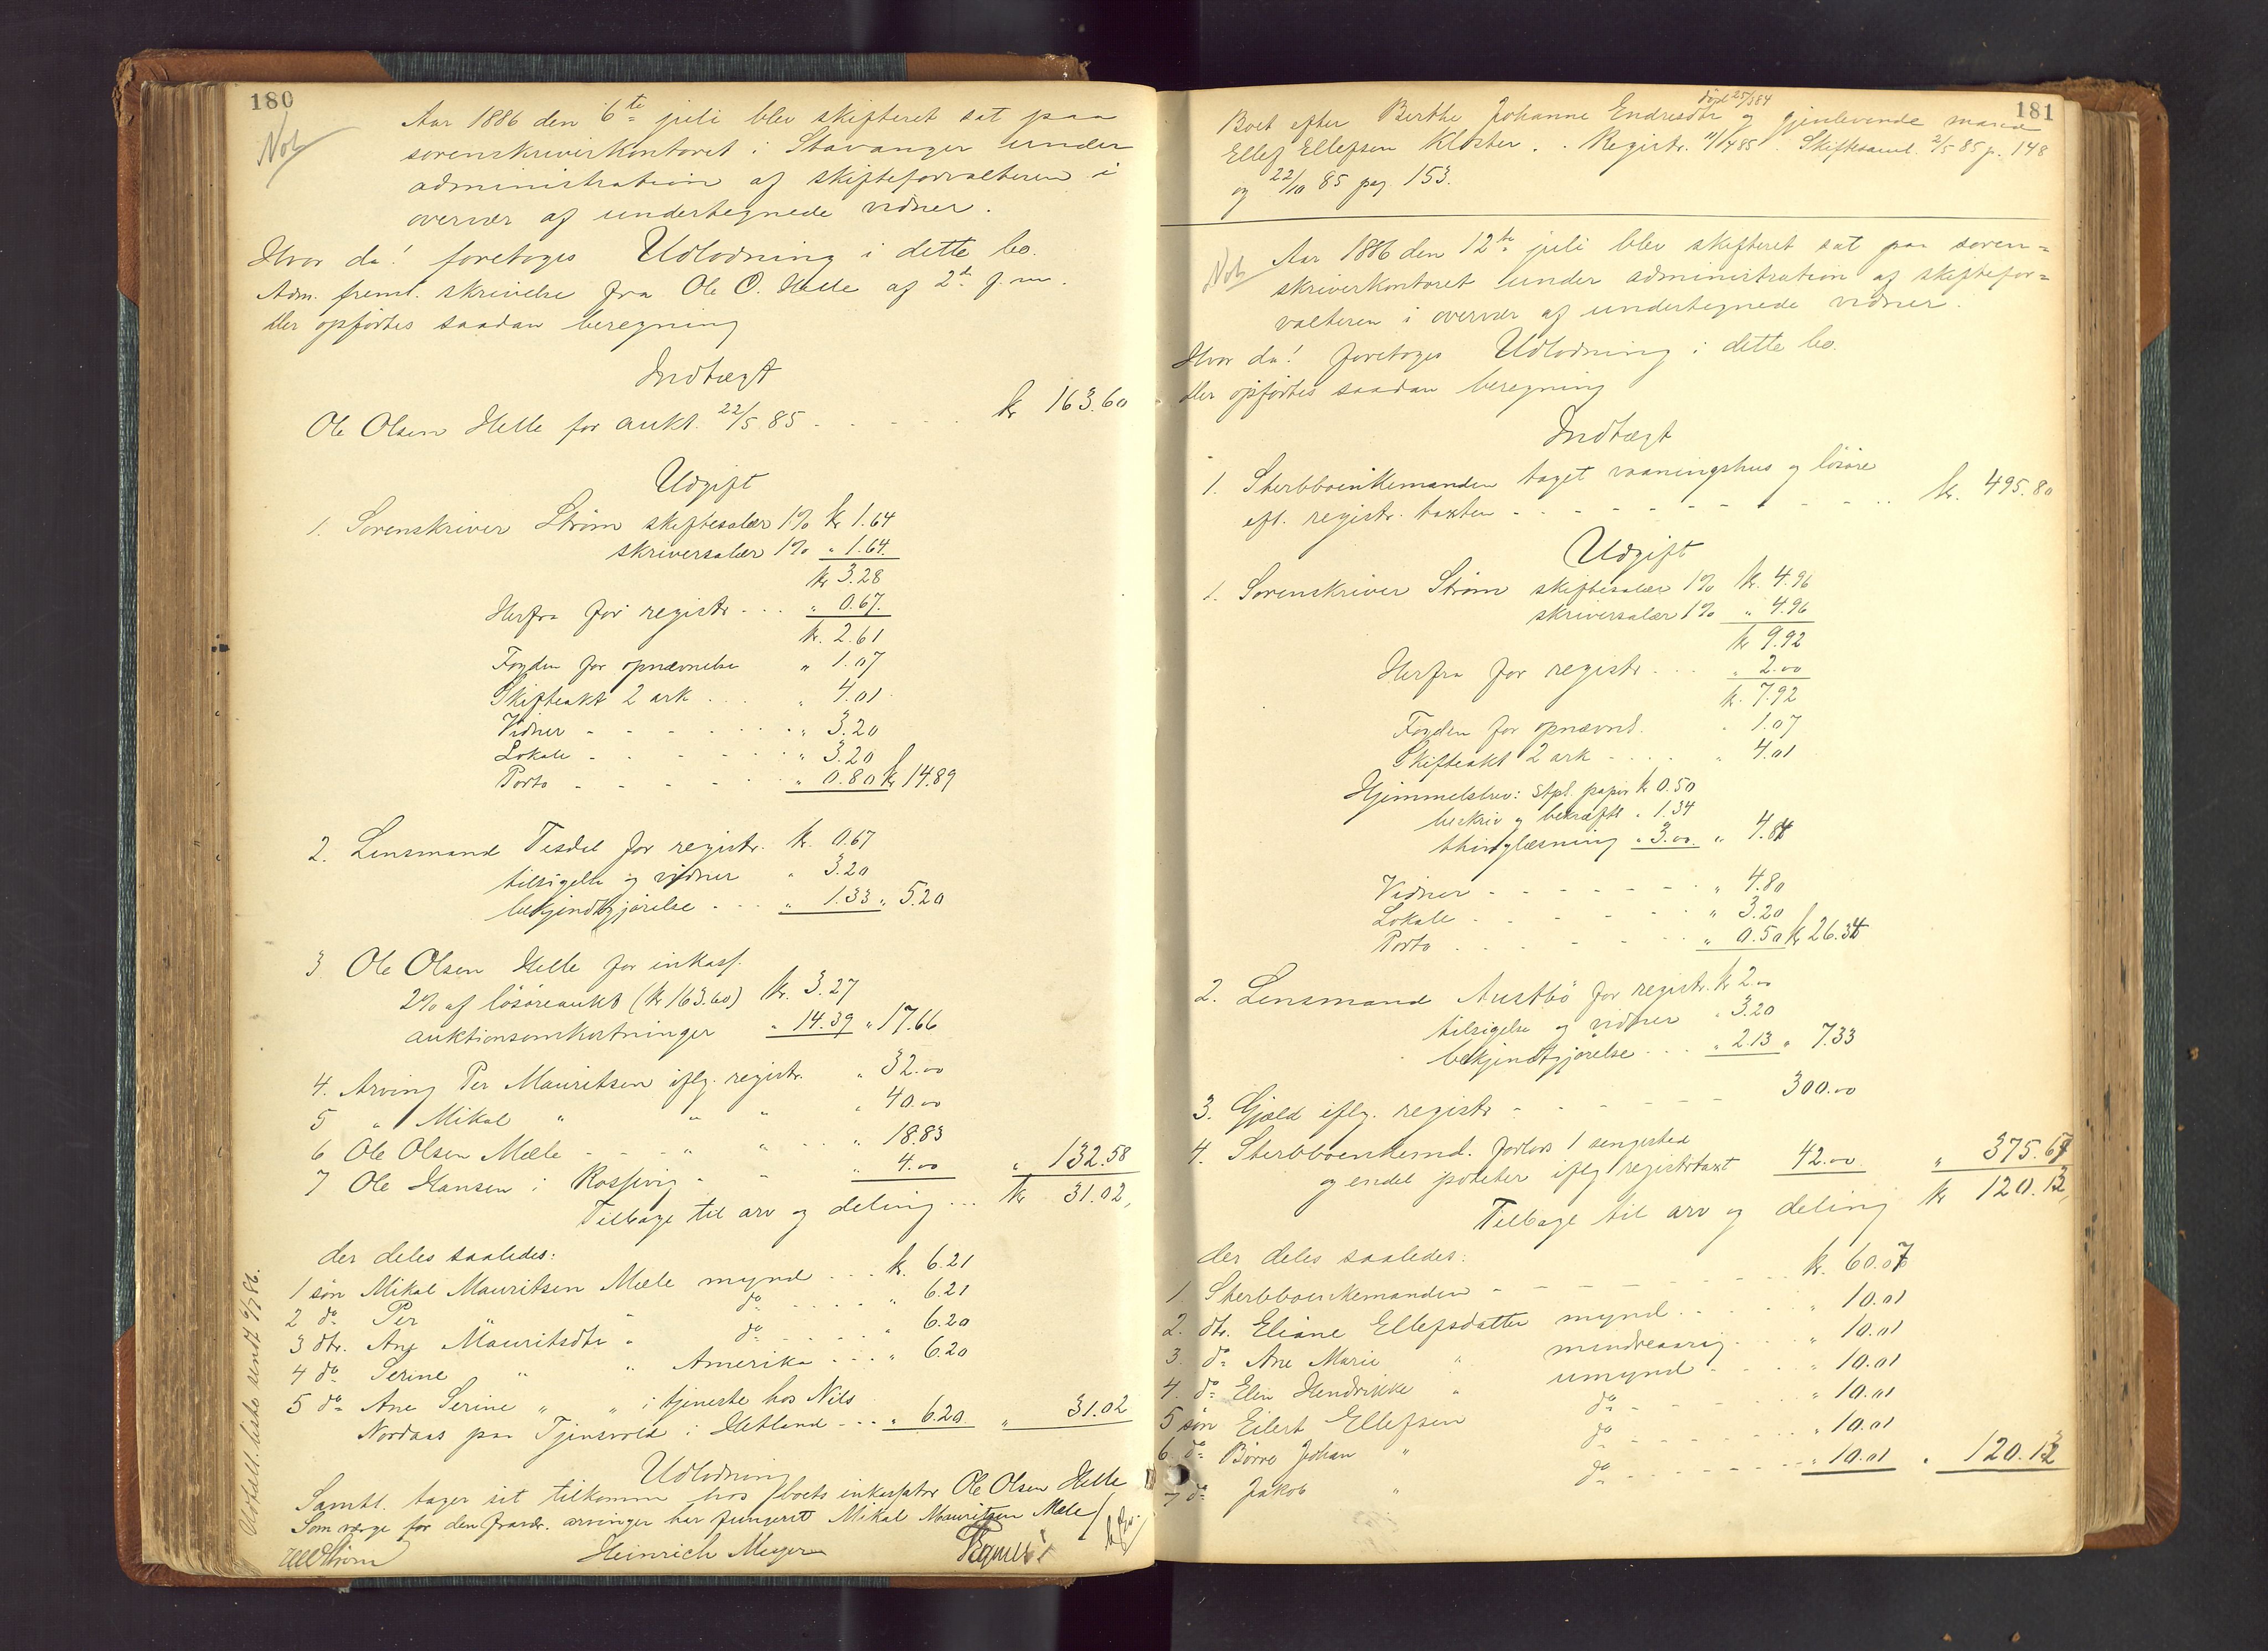 180
Not
Aar 1886 den 6te juli blev skifteret sat paa
sorenskriverkontoret i Stavanger under
administration af skifteforvalteren i
overvær af undertegnede vidner.
Hvor da! foretoges Udlodning i dette bo.
Adm. freml. skrivelse fra Ole O. Helle af 2d. f. m.
Der opførtes saadan beregning
Indtægt
Ole Olsen Helle for aukt. 22/5 85 - - - - - kr 163.60
Udgift
1. Sorenskriver Strøm skiftesalær 1% kr 1.64
skriversalær 1% " 1.64.
kr 3.28
Herfra for registr. . . " 0.67.
kr. 2.61
Fogden for opnævnelse " 1.07
Skifteakt 2 ark . . . " 4.01
Vidner - - - - - " 3.20
Lokale - - - - - " 3.20
Porto - - - - - " 0.80 kr 14.89
2. Lensmand Tisdel for registr. kr. 0.67
tilsigelse og vidner " 3.20
bekjendtgjørelse . . . " 1.33 " 5.20
3 Ole Olsen Helle for inkass.
2% af løsøreaukt (kr 163.60) kr. 3.27
auktionsomkostninger " 14.39 " 17.66
4. Arving Per Mauritsen iflg. registr. " 32.00
5 " Mikal " " " " 40.00
6 Ole Olsen Mæle - - - " " . . " 18.83
7 Ole Hansen i Rossevig - - " 4.00 " 132.58
Tilbage til arv og deling . . . kr 31.02,
der deles saaledes:
1 søn Mikal Mauritsen Mæle mynd . . . kr. 6.21
2 do Per " do . . . . " 6.21
3 dtr. Ane Mauritsdtr " do . . . . " 6.20
4 do Serine " " Amerika . . . " 6.20
5 do Ane Serine " " i tjeneste hos Nils
Nordaas paa Tjensvold i Hetland - - . " 6.20 " 31.02
Udlodning
Samtl. tager sit tilkomm hos boets inkassator Ole Olsen Helle
Som værge for den fravær. arvinger har fungeret Mikal Mauritsen Mæle
Heinrich Meyer
Udstedt. liste sendt 6/7 86.
181
død 25/3 84
Boet efter Berthe Johanne Endresdtr og gjenlevende mand
Ellef Ellefsen Kloster. . Registr. 11/4 85. Skiftesaml. 2/5 85 p. 148
og 22/10 85 pag 153.
Not
Aar 1886 den 12te juli blev skifteret sat paa soren=
skriverkontoret under administration af skiftefor=
valteren i overvær af undertegnede vidner.
Hvor da! foretoges Udlodning i dette bo.
Der opførtes saadan beregning
Indtægt
1. Sterbboenkemanden taget vaaningshus og løsøre
eft. registr. taxten - - - - - - - - . . kr. 495.80
Udgift
1. Sorenskriver Strøm skiftesalær 1% kr. 4.96
skriversalær 1% " 4.96
kr 9.92
Herfra for registr. . . . " 2.00
kr. 7.92
Fogden for opnævnl. " 1.07
Skifteakt 2 ark - . . . " 4.01
Hjemmelsbrev: stpl. papir kr 0.50
beskriv og bekræft " 1.34
thinglæsning " 3.00. " 4.84
Vidner - - - - - " 4.80
Lokale . - - - - " 3.20
Porto . . - - - " 0.50 kr 26.34
2. Lensmand Austbø for registr. kr 2.00
tilsigelse og vidner " 3.20
bekjendtgjørelse . . . " 2.13 " 7.33
3. Gjæld iflg. registr - - - - - - 300.00
4. Sterbboenkemd. forlods 1 sengested
og endel poteter iflg registrtaxt 42.00 " 375.67
Tilbage til arv og deling kr 120.13,
der deles saaledes:
1. Sterbboenkemanden - - - - - - - . . kr. 60.07
2. dtr. Eliane Ellefsdatter mynd. . . . . " 10.01
3. do Ane Marie " mindreaarig . . . " 10.01
4. do Elen Hendrikke " umynd - - . . " 10.01
5 søn Eilert Ellefsen do - - - - " 10.01
6 do Børre Johan " do - - - - " 10.01
7 do Jakob " do - - - - " 10.01 " 120.13